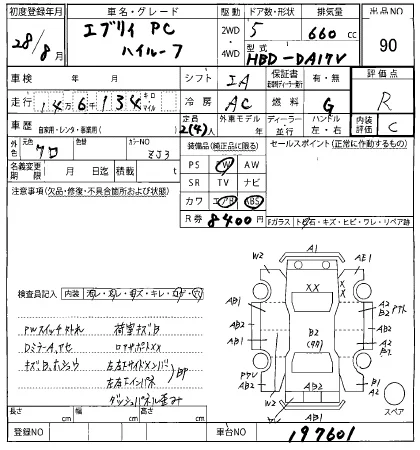 初度登録年月 車名・グレード 駆動 ドア数・形状 排気量 出品NO
28/8月 エブリィ PC ハイルーフ 2WD・4WD 5 660 cc 90
型式 HBD-DA17V
車検 年 月 シフト IA 保証書 有・無 評価点
走行 14万6千134 キロ マイル 冷房 AC 燃料 G R
車歴 自家用・レンタ・事業用( ) 定員 2(4)人 外車モデル 年 ディーラー・並行 ハンドル 左・右 内装評価 C
色 元色 クロ 色替 カラーNO ZJ3 装備品(純正品に限る) セールスポイント(正常に作動するもの)
名義変更期限 月 日迄 積載 t
PS PW AW
SR TV ナビ
注意事項(欠品・修復・不具合箇所および状態) カワ エアB ABS
R券 8400円 Fガラス トビ石・キズ・ヒビ・ワレ・リペア跡
A1
W2 AE1
XX
AB1 A2 AB2 A2
検査員記入 内装
PWスイッチ大トレ 荷室キズB
AB1 B2 A2
DミラーA,アセ ロアサポートXX
キズB,ホショウ 左右Fサイドメンバ
AB2 A2 B2
左右Fインパネ BP
W2 AB2 A2
ダッシュパネル歪み
AB2 AB1
スペア
長さ cm 幅 cm 高さ cm
登録NO 車台NO 197601